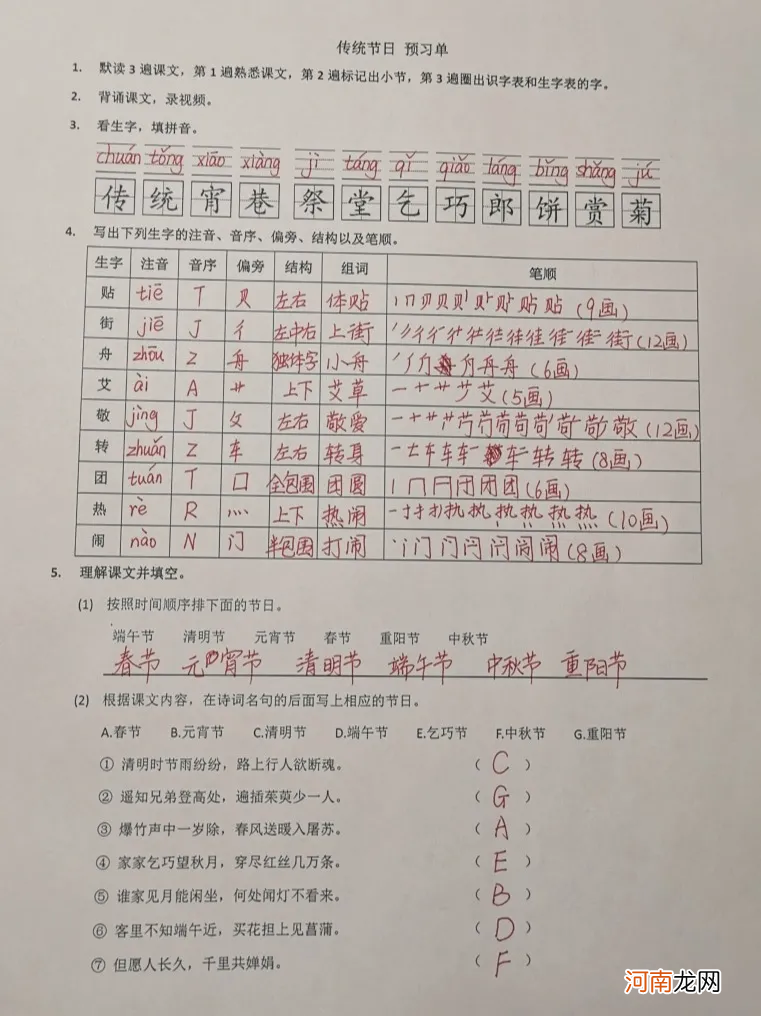 传统节日 预习单
1. 默读 3 遍课文，第 1 遍熟悉课文，第 2 遍标记出小节，第 3 遍圈出识字表和生字表的字。
2. 背诵课文，录视频。
3. 看生字，填拼音。
chuán tǒng xiāo xiàng jì táng qǐ qiǎo láng bǐng shǎng jú
传 统 宵 巷 祭 堂 乞 巧 郎 饼 赏 菊
4. 写出下列生字的注音、音序、偏旁、结构以及笔顺。
生字 注音 音序 偏旁 结构 组词 笔顺
贴 tiē T 贝 左右 体贴 贴 (9画)
街 jiē J 彳 左中右 上街 街 (12画)
舟 zhōu Z 舟 独体字 小舟 舟 (6画)
艾 ài A 艹 上下 艾草 艾 (5画)
敬 jìng J 攵 左右 敬爱 敬 (12画)
转 zhuǎn Z 车 左右 转身 转 (8画)
团 tuán T 囗 全包围 团圆 团 (6画)
热 rè R 灬 上下 热闹 热 (10画)
闹 nào N 门 半包围 打闹 闹 (8画)
5. 理解课文并填空。
(1) 按照时间顺序排下面的节日。
端午节 清明节 元宵节 春节 重阳节 中秋节
春节 元宵节 清明节 端午节 中秋节 重阳节
(2) 根据课文内容，在诗词名句的后面写上相应的节日。
A.春节 B.元宵节 C.清明节 D.端午节 E.乞巧节 F.中秋节 G.重阳节
① 清明时节雨纷纷，路上行人欲断魂。 （ C ）
② 遥知兄弟登高处，遍插茱萸少一人。 （ G ）
③ 爆竹声中一岁除，春风送暖入屠苏。 （ A ）
④ 家家乞巧望秋月，穿尽红丝几万条。 （ E ）
⑤ 谁家见月能闲坐，何处闻灯不看来。 （ B ）
⑥ 客里不知端午近，买花担上见菖蒲。 （ D ）
⑦ 但愿人长久，千里共婵娟。 （ F ）
河南龙网